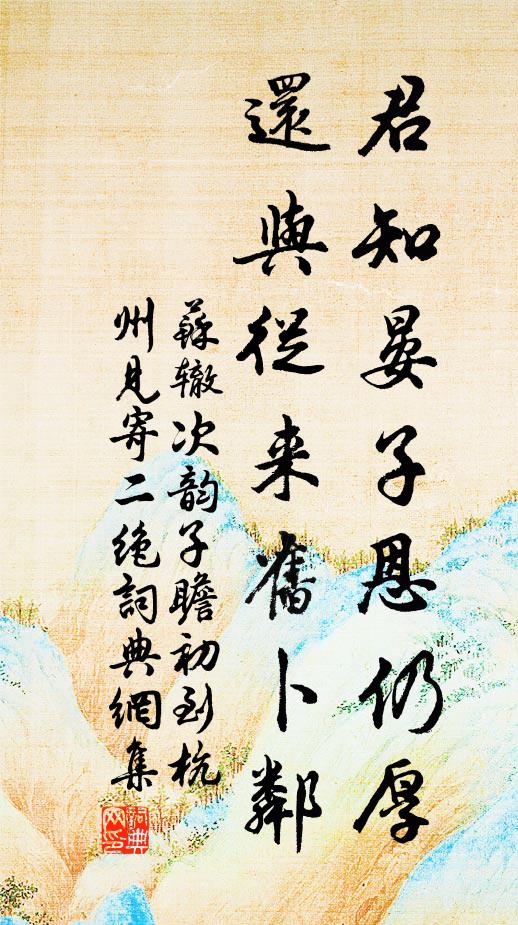 君知晏子恩仍厚
還與從来舊卜鄰
蘇轍次韵子瞻初到杭
州見寄二绝詞典網集
詞典
网印